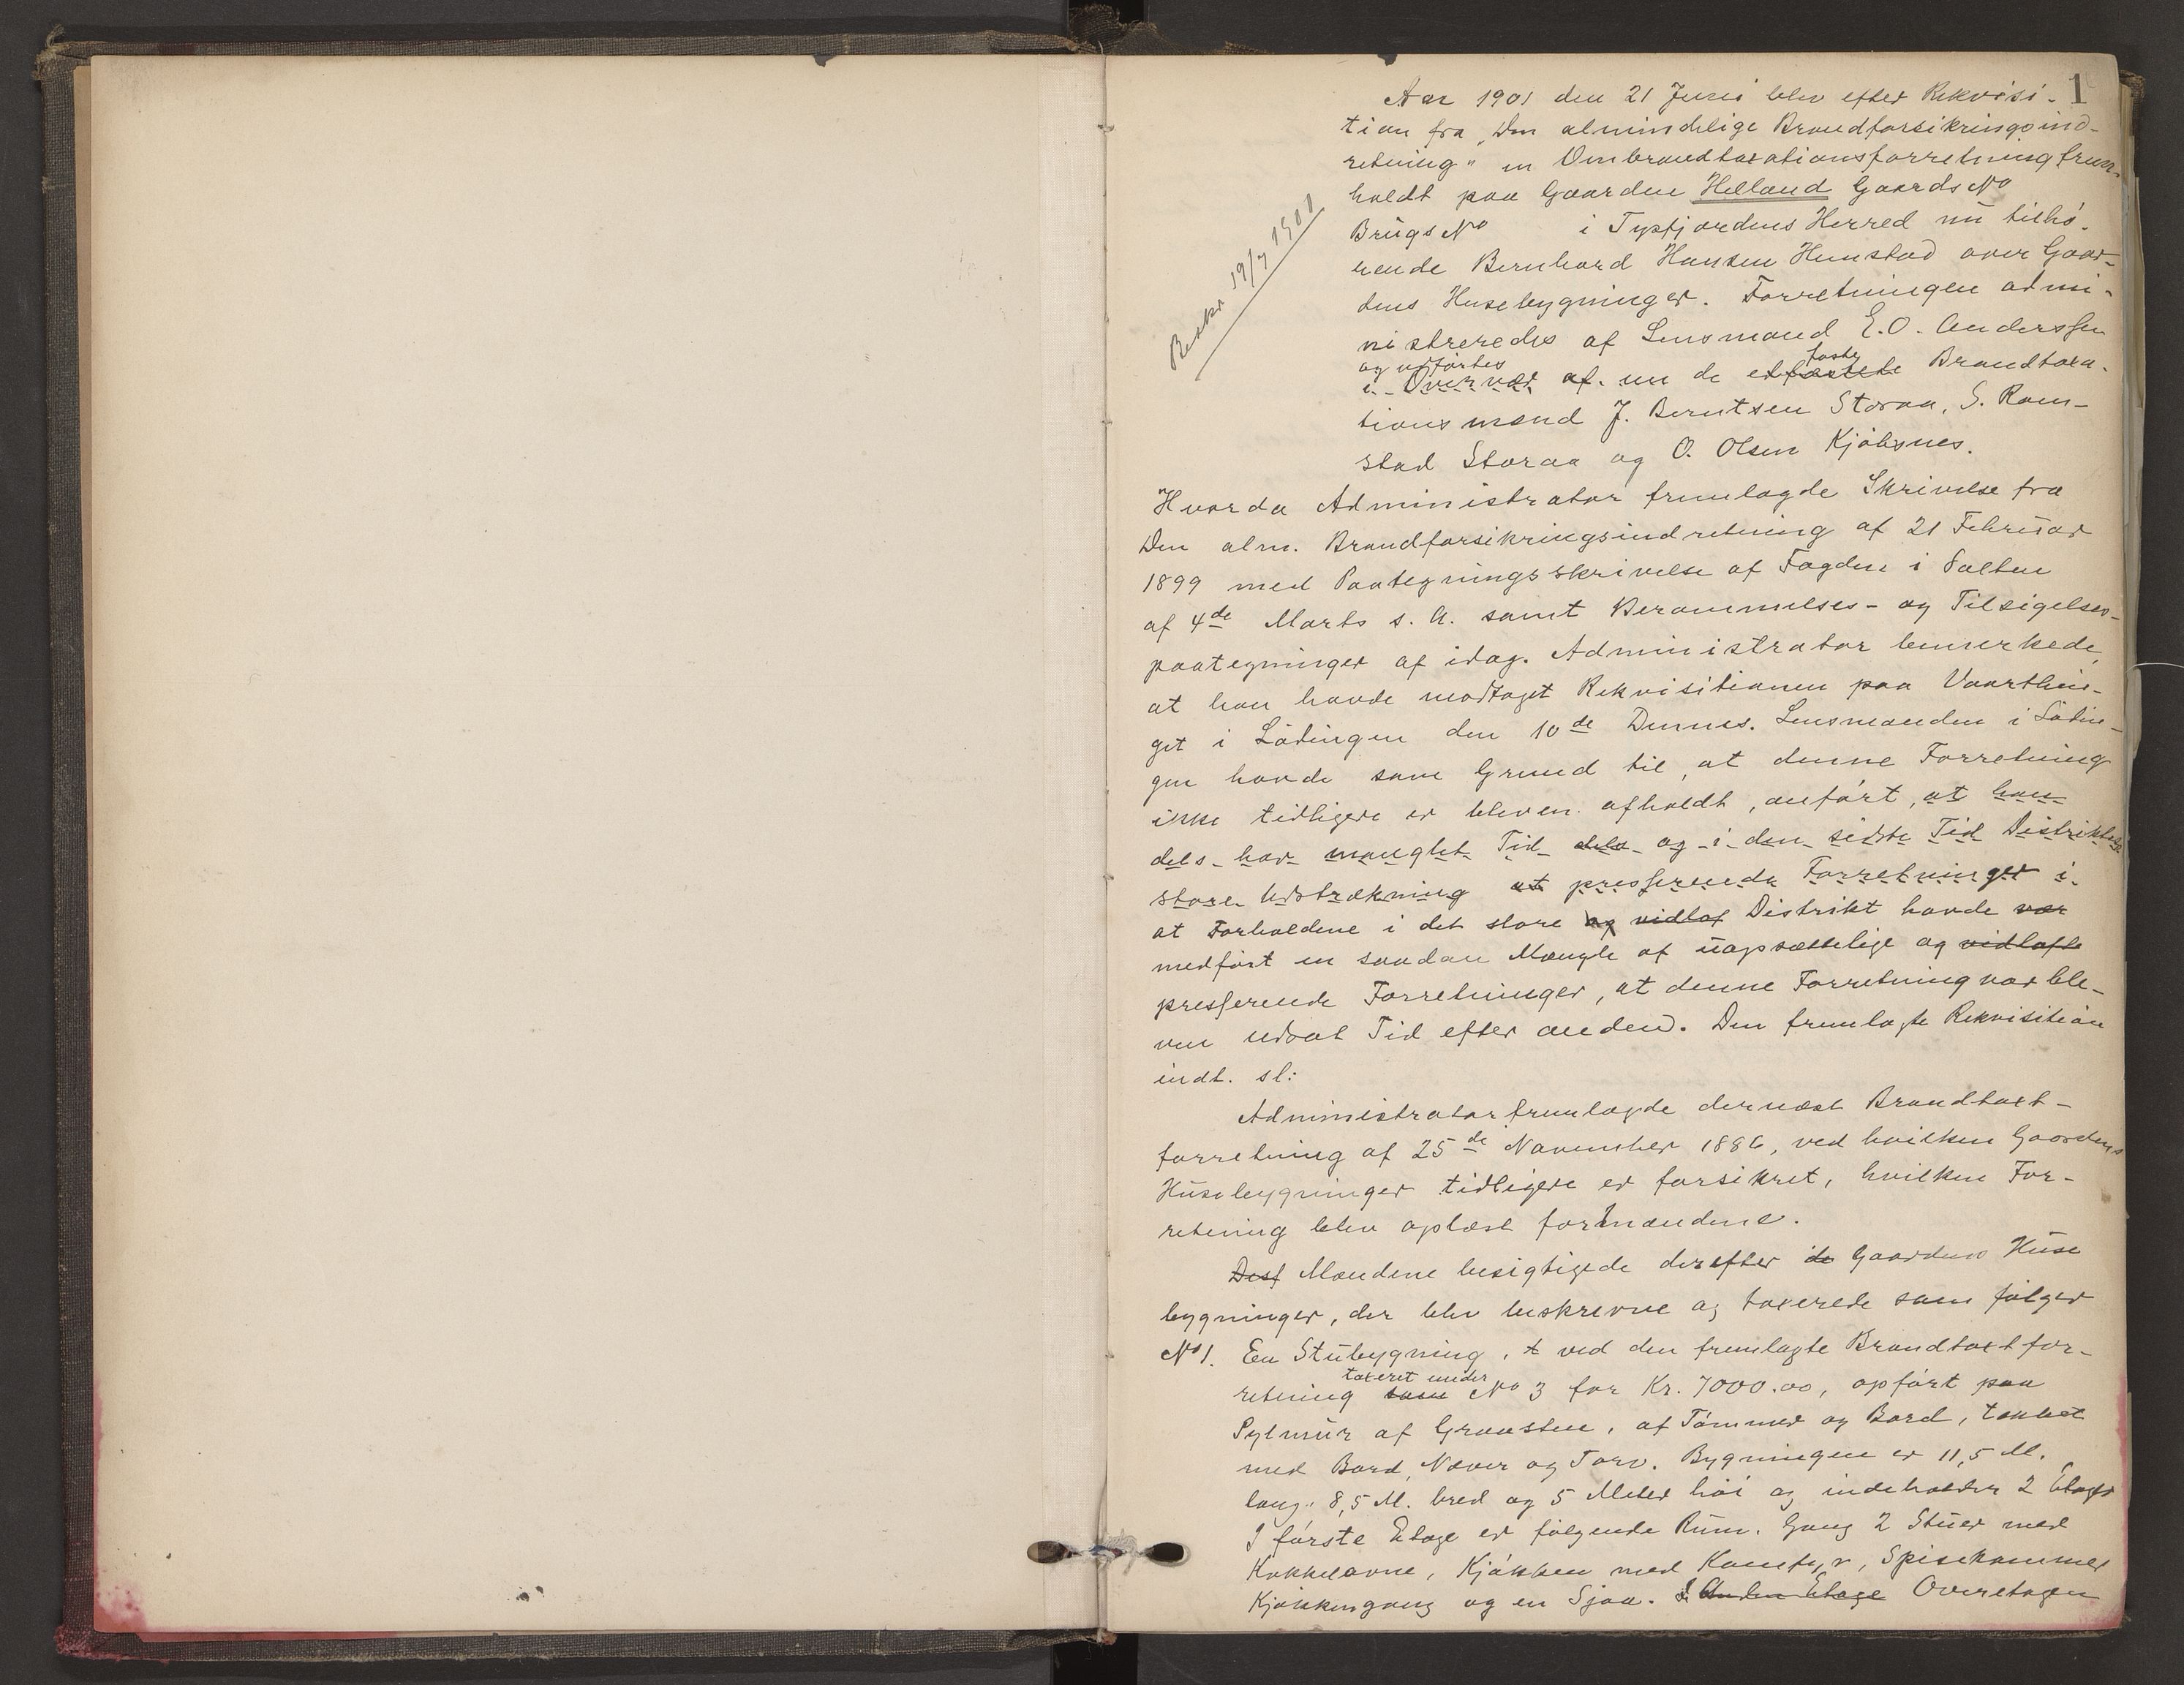 1
Aar 1901 den 21 Juni blev efter Rekvisi-
tion fra „Den almindelige Brandforsikringsind-
retning" en Ombrandtaxationsforretning frem-
holdt paa Gaarden Helland Gaards No
Brugs No i Tysfjordens Herred nu tilhö-
rende Bernhard Hansen Hunstad over Gaar-
dens Husebygninger. Forretningen admi-
nistreredes af Lensmand E. O. Anderssen
og udförtes faste
i Overvær af. en de edfæstede Brandtaxa-
tionsmænd J. Berntsen Storaa, S. Ram-
stad Storaa og O. Olsen Kjöbsnes.
Beskr 19/7 1901
Hvorda Administrator fremlagde Skrivelse fra
Den alm. Brandforsikringsindretning af 21 Februar
1899 med Paategningsskrivelse af Fogden i Salten
af 4de Marts s. A. samt Berammelses- og Tilsigelses-
paategninger af idag. Administrator bemerkede,
at han havde modtaget Rekvisitionen paa Vaarthin-
get i Lödingen den 10de Dennes. Lensmanden i Lödin-
gen havde som Grund til, at denne Forretning
ikke tidligere er bleven afholdt, anfört, at han
dels har manglet Tid dels og i den sidste Tid Distriktets
store Udstrækning at presserende Forretninger i
at Forholdene i det store og vidløf Distrikt havde vær
medfört en saadan Mængde af uopsættelige og vidløfte
presserende Forretninger, at denne Forretning var ble-
ven udsat Tid efter anden. Den fremlagte Rekvisition
indt. sl:
Administrator fremlagde dernæst Brandtaxt-
forretning af 25de November 1886, ved hvilken Gaardens
Husebygninger tidligere er forsikret, hvilken For-
retning blev oplæst for Mændene.
Desf Mændene besigtigede derefter de Gaardens Huse
bygninger, der blev beskrevne og taxerede som fölger
No 1. En Stubygning, t ved den fremlagte Brandtaxtfor-
taxeret under
retning som No 3 for Kr. 7000.00, opfört paa
Pylmur af Graasten, af Tömmer og Bord, tækket
med Bord, Næver og Torv. Bygningen er 11,5 M.
lang, 8,5 M. bred og 5 Meter höi og indeholder 2 Etager
I förste Etage er fölgende Rum. Gang 2 Stuer med
Kakkelovne, Kjökken med Komfyr, Spisekammer
Kjökkengang og en Sjaa. I Anden Etage Overetagen